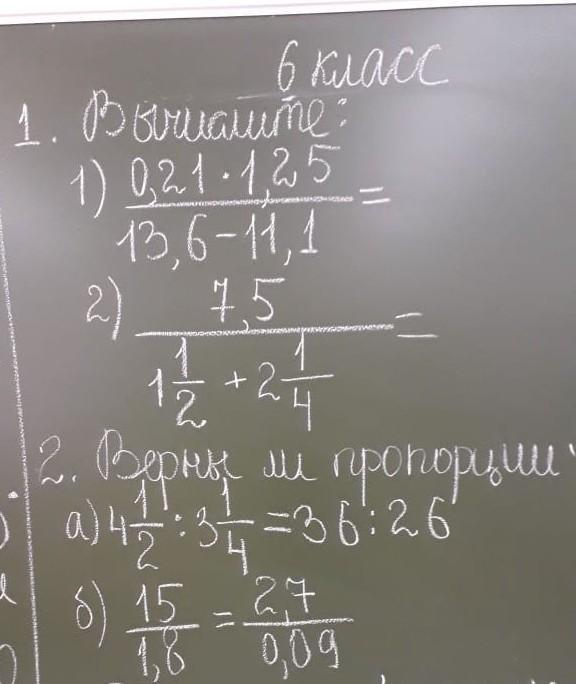 6 класс
1. Вычислите:
1) 0,21 · 1,25 / 13,6 - 11,1 =
2) 7,5 / 1 1/2 + 2 1/4 =
2. Верны ли пропорции
а) 4 1/2 : 3 1/4 = 36 : 26
б) 15 / 1,8 = 2,7 / 0,09